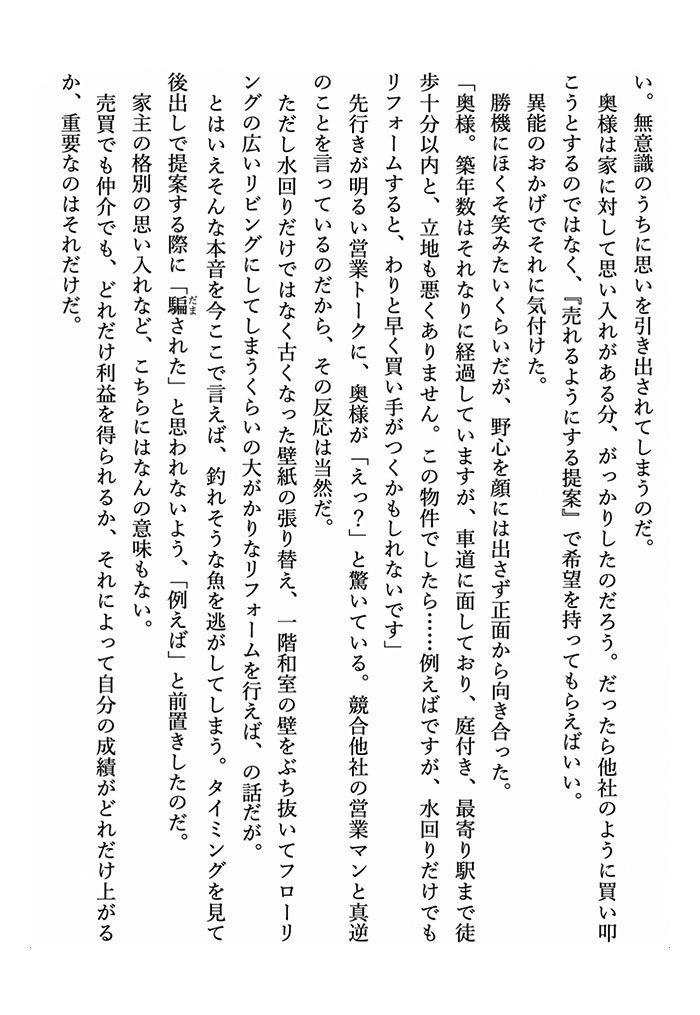 い。無意識のうちに思いを引き出されてしまうのだ。
奥様は家に対して思い入れがある分、がっかりしたのだろう。だったら他社のように買い叩
こうとするのではなく、『売れるようにする提案』で希望を持ってもらえばいい。
異能のおかげでそれに気付けた。
勝機にほくそ笑みたいくらいだが、野心を顔には出さず正面から向き合った。
「奥様。築年数はそれなりに経過していますが、車道に面しており、庭付き、最寄り駅まで徒
歩十分以内と、立地も悪くありません。この物件でしたら……例えばですが、水回りだけでも
リフォームすると、わりと早く買い手がつくかもしれないです」
先行きが明るい営業トークに、奥様が「えっ？」と驚いている。競合他社の営業マンと真逆
のことを言っているのだから、その反応は当然だ。
ただし水回りだけではなく古くなった壁紙の張り替え、一階和室の壁をぶち抜いてフローリ
ングの広いリビングにしてしまうくらいの大がかりなリフォームを行えば、の話だが。
とはいえそんな本音を今ここで言えば、釣れそうな魚を逃がしてしまう。タイミングを見て
後出しで提案する際に「騙された」と思われないよう、「例えば」と前置きしたのだ。
家主の格別の思い入れなど、こちらにはなんの意味もない。
売買でも仲介でも、どれだけ利益を得られるか、それによって自分の成績がどれだけ上がる
か、重要なのはそれだけだ。